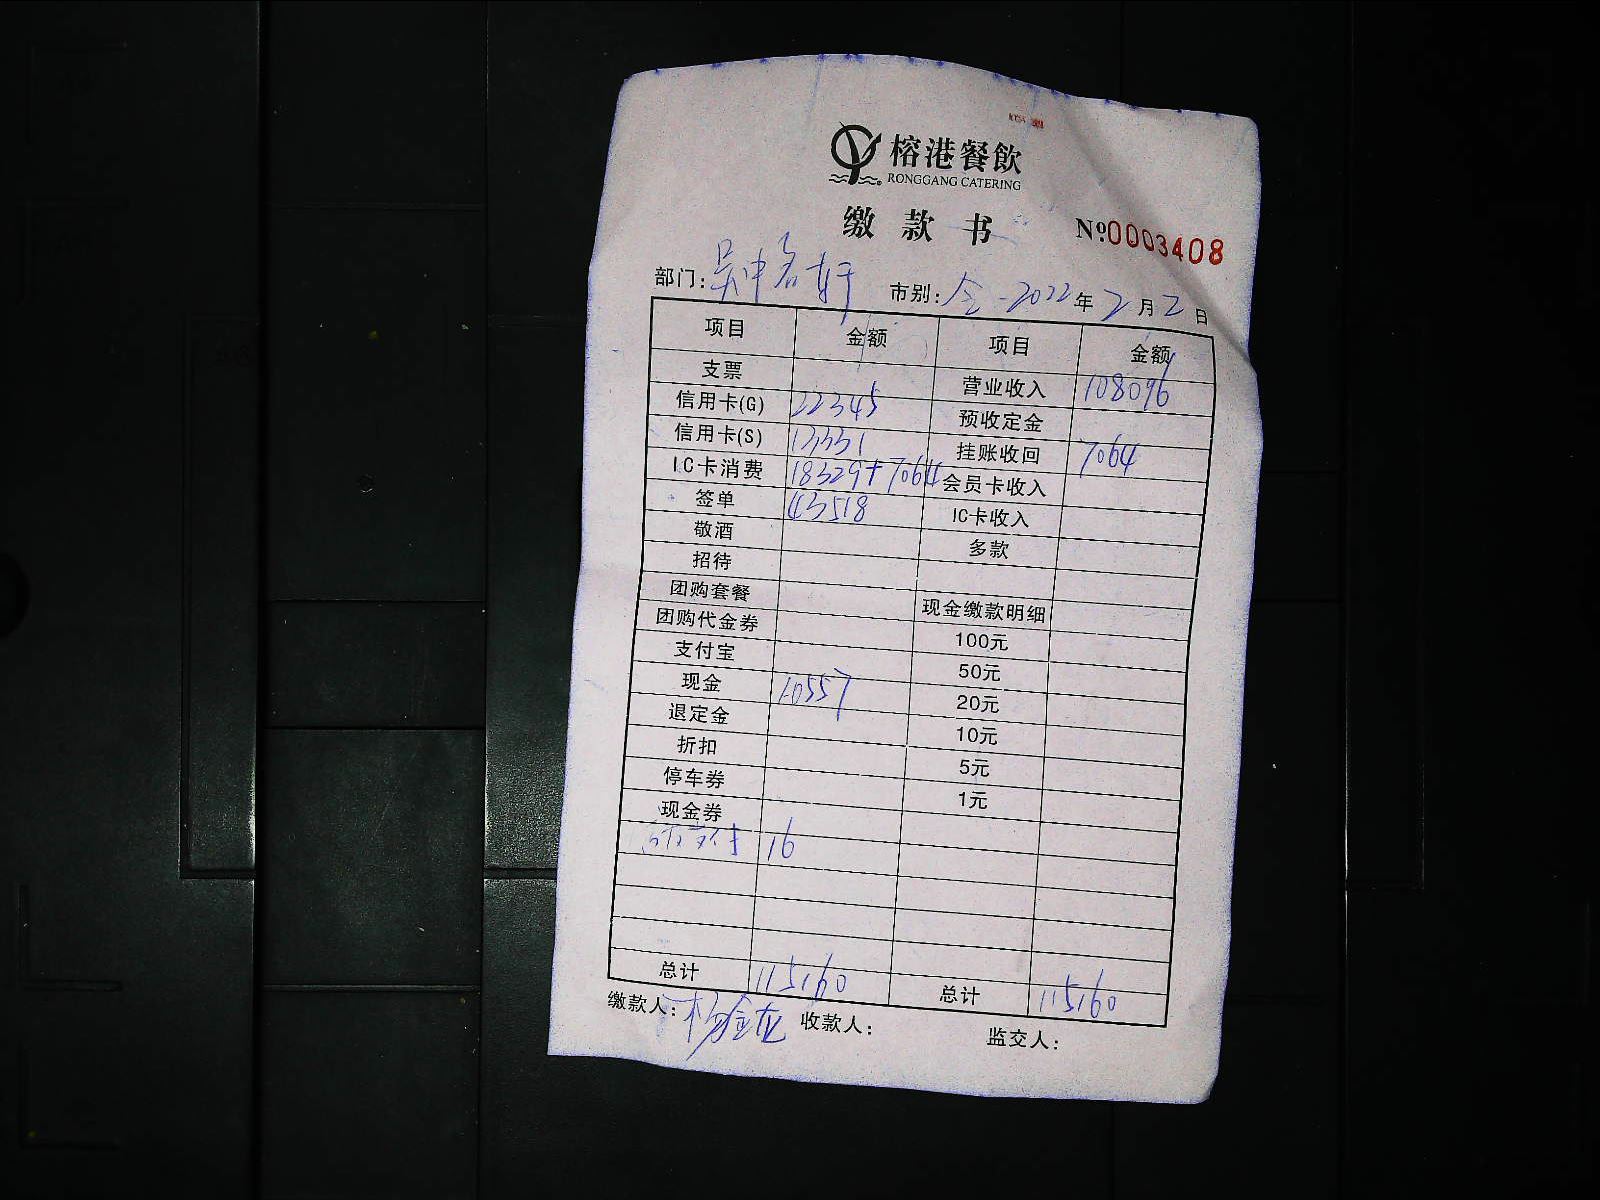 榕港餐飲
RONGGANG CATERING
缴款书 №0003408
部门: 吴中名轩 市别: 全 2022年2月2日
项目 金额 项目 金额
支票 营业收入 108096
信用卡(G) 22345 预收定金
信用卡(S) 13331 挂账收回 7064
IC卡消费 18329+7064 会员卡收入
签单 43518 IC卡收入
敬酒 多款
招待
团购套餐 现金缴款明细
团购代金券 100元
支付宝 50元
现金 10557 20元
退定金 10元
折扣 5元
停车券 1元
现金券
16
总计 115160 总计 115160
缴款人: 杨金龙 收款人: 监交人: